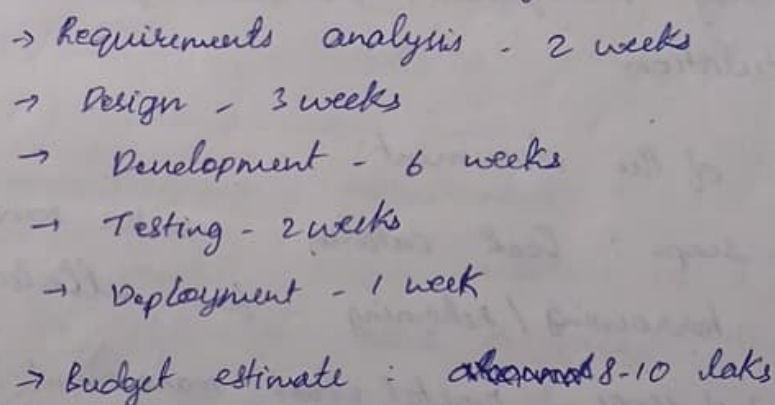 → Requirements analysis - 2 weeks
→ Design - 3 weeks
→ Development - 6 weeks
→ Testing - 2 weeks
→ Deployment - 1 week
→ Budget estimate : 8-10 laks